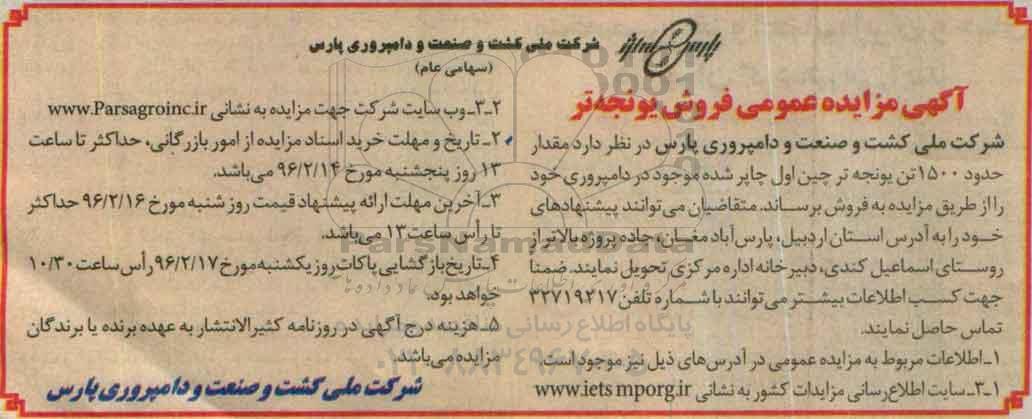 شرکت ملی کشت و صنعت و دامپروری پارس
(سهامی عام)
آگهی مزایده عمومی فروش یونجه تر
شرکت ملی کشت و صنعت و دامپروری پارس در نظر دارد مقدار
حدود ۱۵۰۰ تن یونجه تر چین اول چاپر شده موجود در دامپروری خود
را از طریق مزایده به فروش برساند. متقاضیان می توانند پیشنهادهای
خود را به آدرس استان اردبیل، پارس آباد مغان، جاده پروژه بالاتر از
روستای اسماعیل کندی، دبیرخانه اداره مرکزی تحویل نمایند. ضمنا
جهت کسب اطلاعات بیشتر می توانند با شماره تلفن ۳۲۷۱۹۲۱۷
تماس حاصل نمایند.
۱ـ اطلاعات مربوط به مزایده عمومی در آدرس های ذیل نیز موجود است.
۱ـ۳ـ سایت اطلاع رسانی مزایدات کشور به نشانی www.iets mporg.ir
۲ـ۳ـ وب سایت شرکت جهت مزایده به نشانی www.Parsagroinc.ir
۲ـ تاریخ و مهلت خرید اسناد مزایده از امور بازرگانی، حداکثر تا ساعت
۱۳ روز پنجشنبه مورخ ۹۶/۲/۱۴ می باشد.
۳ـ آخرین مهلت ارائه پیشنهاد قیمت روز شنبه مورخ ۹۶/۲/۱۶ حداکثر
تا رأس ساعت ۱۳ می باشد.
۴ـ تاریخ بازگشایی پاکات روز یکشنبه مورخ ۹۶/۲/۱۷ رأس ساعت ۱۰/۳۰
خواهد بود.
۵ـ هزینه درج آگهی در روزنامه کثیرالانتشار به عهده برنده یا برندگان
مزایده می باشد.
شرکت ملی کشت و صنعت و دامپروری پارس
ParsNamadData
پایگاه اطلاع رسانی